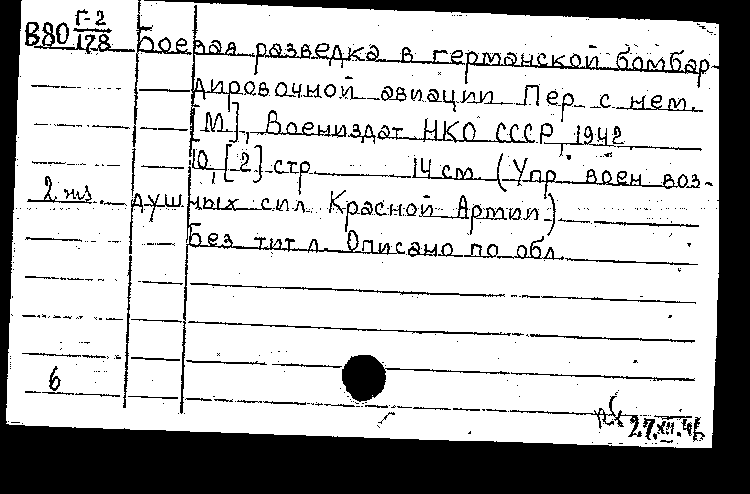 В80 Г-2
178
Боевая разведка в германской бомбар-
дировочной авиации Пер. с нем.
[М.], Воениздат НКО СССР, 1942.
10, [2] стр 14 см (Упр воен воз-
2 экз. душных сил Красной Армии)
Без тит л. Описано по обл.
6
27.XII.46